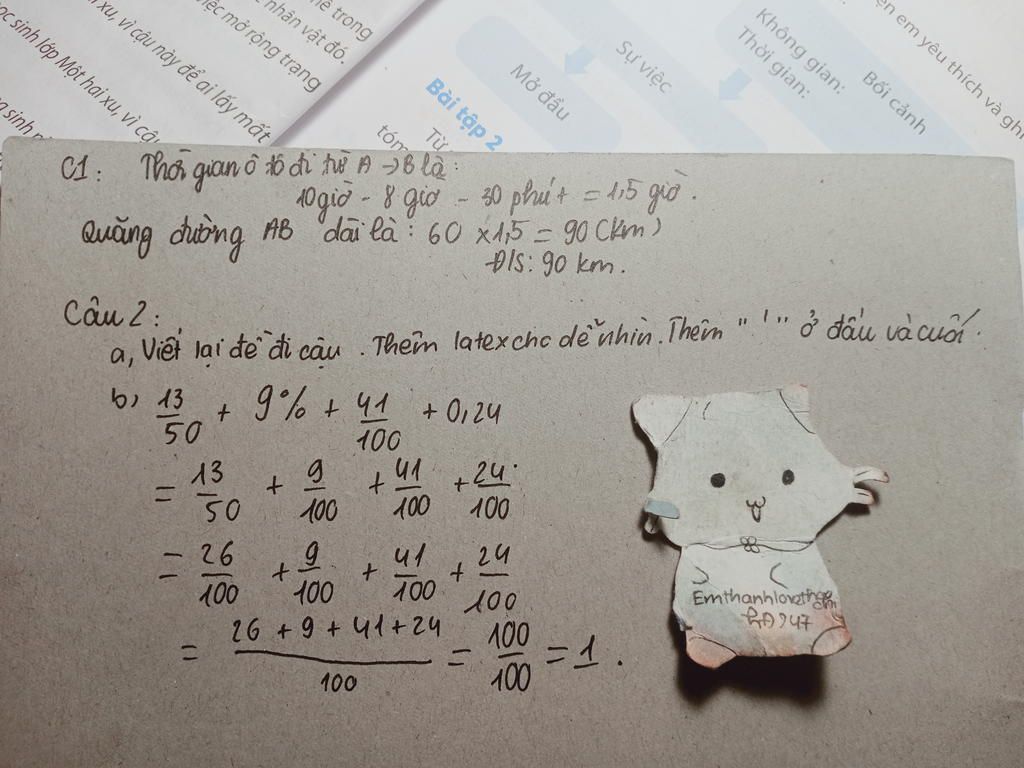 hê trong
c nhân vật đó.
iệc mở rộng trạng
hai xu, vì cậu này để ai lấy mất
ọc sinh lớp Một hai xu, vì cậu
Bài tập 2
Từ
tóm
Mở đầu
Sự việc
Không gian:
Thời gian:
Bối cảnh
ện em yêu thích và gh
C1: Thời gian ô tô đi từ A → B là:
10 giờ - 8 giờ - 30 phút = 1,5 giờ.
Quãng đường AB dài là: 60 x 1,5 = 90 (km)
Đ/S: 90 km.
Câu 2:
a, Viết lại đề đi cậu. Thêm latex cho dễ nhìn. Thêm " ' " ở đầu và cuối.
b, 13/50 + 9% + 41/100 + 0,24
= 13/50 + 9/100 + 41/100 + 24/100
= 26/100 + 9/100 + 41/100 + 24/100
= 26 + 9 + 41 + 24/100 = 100/100 = 1.